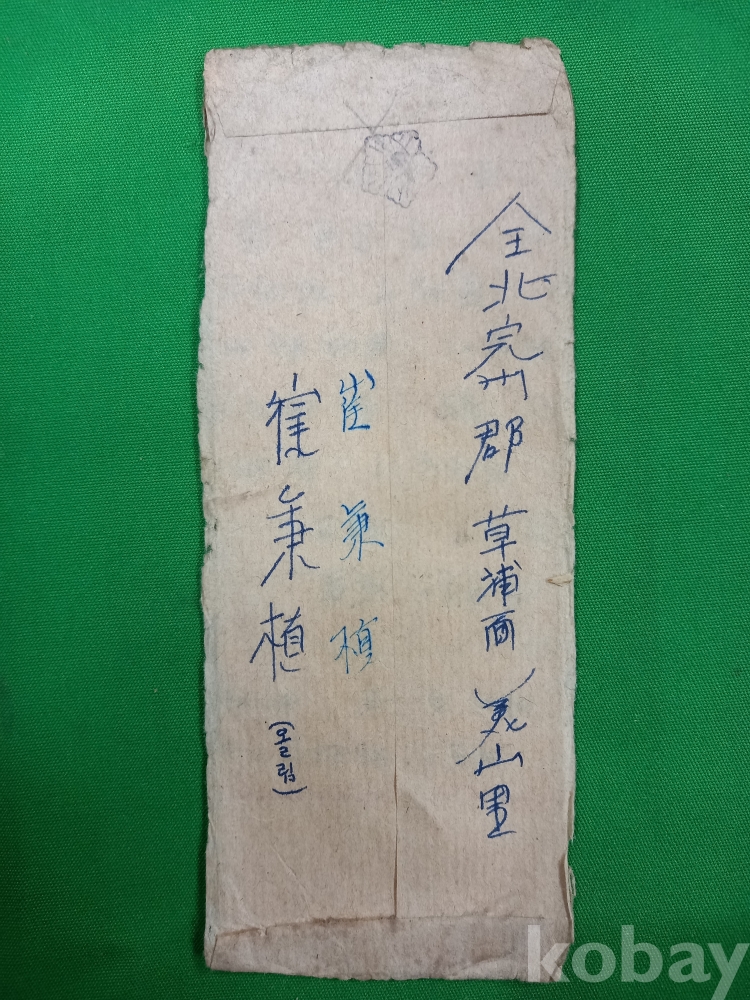 全北完州郡 草浦面 美山里
崔秉植
崔秉植
(올림)
kobay